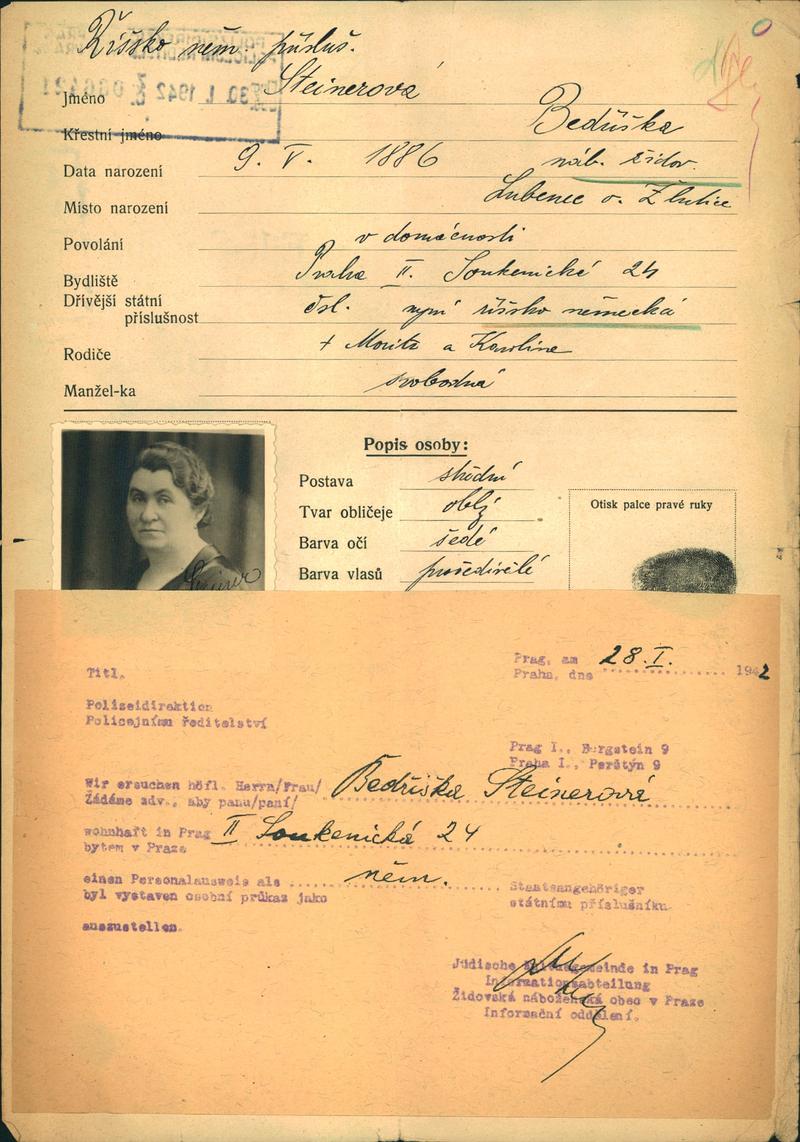 Říšsko něm. přísluš.
30. I. 1942
Jméno Steinerová
Křestní jméno Bedřiška
Data narození 9. V. 1886 náb. židov.
Místo narození Lubenec o. Žlutice
Povolání v domácnosti
Bydliště Praha II. Soukenická 24
Dřívější státní
příslušnost čsl. nyní říšsko německá
Rodiče + Moritz a Karoline
Manžel-ka svobodná
Popis osoby:
Postava střední
Tvar obličeje oblý
Barva očí šedé
Barva vlasů prošedivělé
Otisk palce pravé ruky
Prag, am 28. I. 1942
Praha, dne
Titl.
Polizeidirektion
Policejnímu ředitelství
Prag I., Bergstein 9
Praha I., Perštýn 9
Wir ersuchen höfl. Herrn/Frau/ Bedřiška Steinerová
Žádáme zdv., aby panu/paní/
wohnhaft in Prag II Soukenická 24
bytem v Praze
einen Personalausweis als něm. Staatsangehöriger
byl vystaven osobní průkaz jako státnímu příslušníku
auszustellen.
Jüdische Kultusgemeinde in Prag
Informationsabteilung
Židovská náboženská obec v Praze
Informační oddělení.